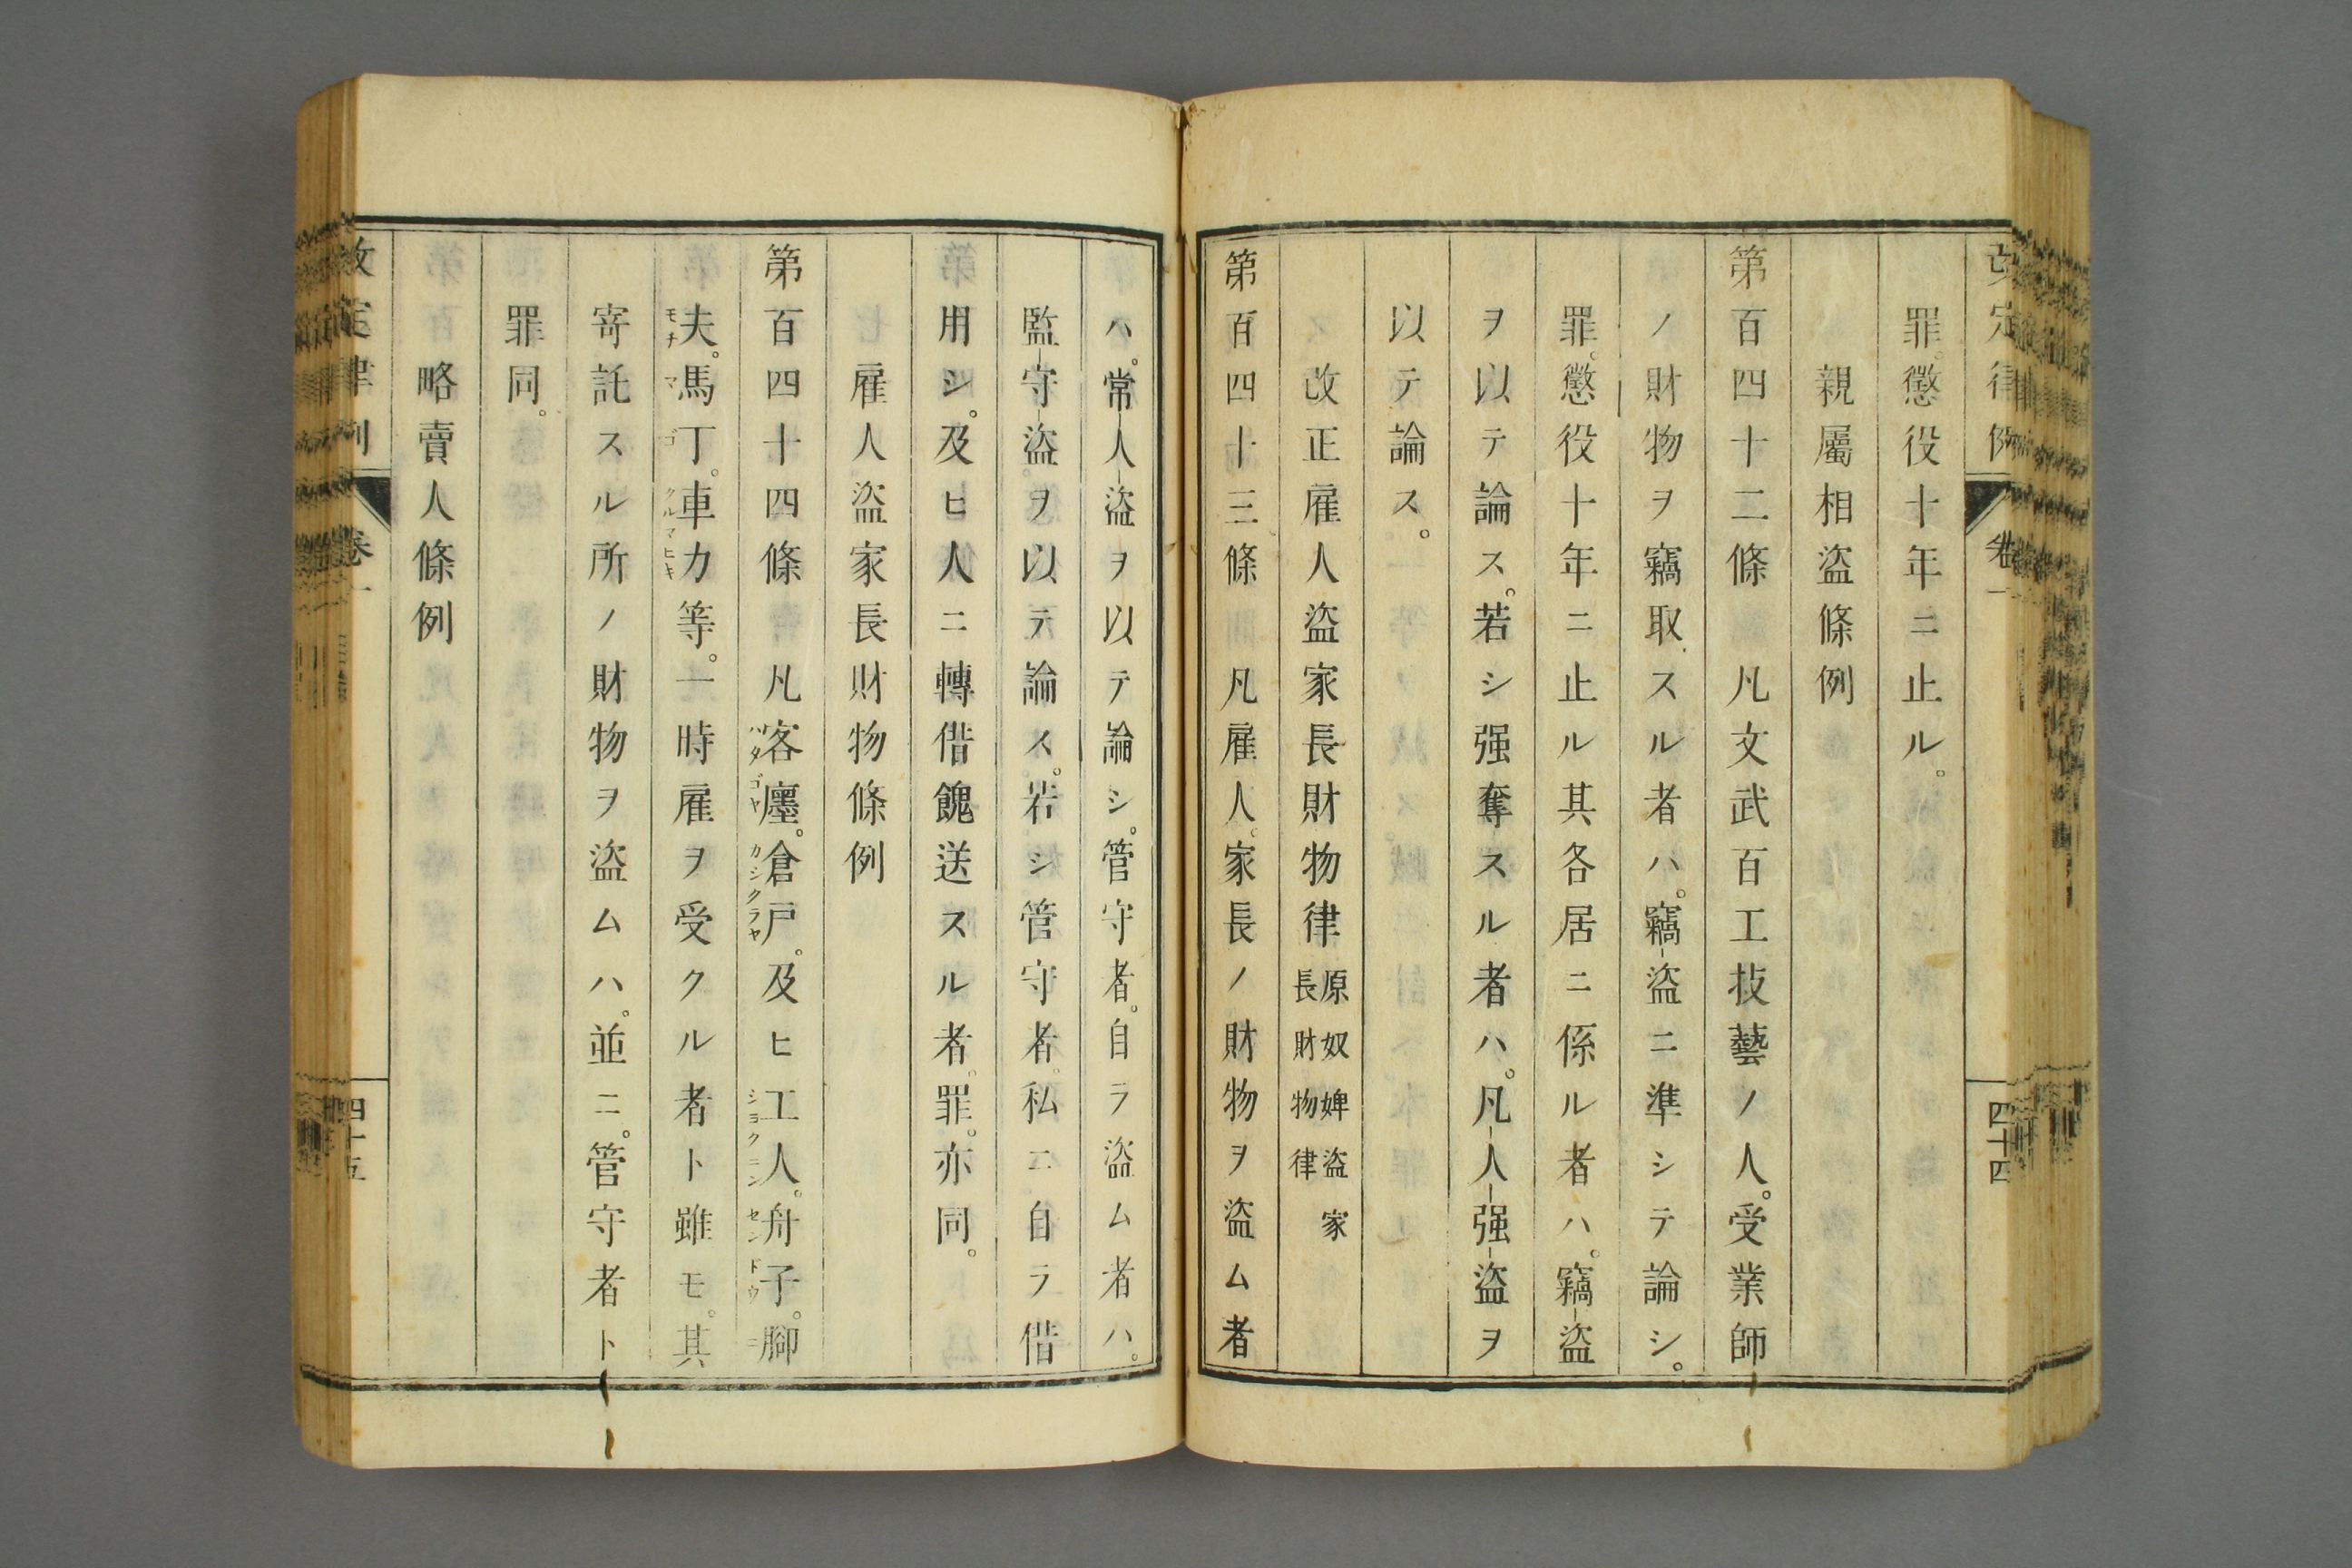 改定律例 卷一 四十四
罪。懲役十年ニ止ル。
親屬相盜條例
第百四十二條 凡文武百工技藝ノ人。受業師
ノ財物ヲ竊取スル者ハ。竊盜ニ準シテ論シ。
罪。懲役十年ニ止ル其各居ニ係ル者ハ。竊盜
ヲ以テ論ス。若シ强奪スル者ハ。凡人强盜ヲ
以テ論ス。
改正雇人盜家長財物律 原奴婢盜家
長財物律
第百四十三條 凡雇人。家長ノ財物ヲ盜ム者
ハ。常人盜ヲ以テ論シ。管守者。自ラ盜ム者ハ。
監守盜ヲ以テ論ス。若シ管守者。私ニ自ラ借
用シ。及ヒ人ニ轉借餽送スル者。罪。亦同。
雇人盜家長財物條例
第百四十四條 凡客廛。倉戸。及ヒ工人。舟子。脚
ハタゴヤ カシクラヤ シヨクニン センドウ ニ
夫。馬丁。車力等。一時雇ヲ受クル者ト雖モ。其
モチ マゴ クルマヒキ
寄託スル所ノ財物ヲ盜ムハ。並ニ。管守者ト
罪同。
略賣人條例
改定律例 卷一 四十五